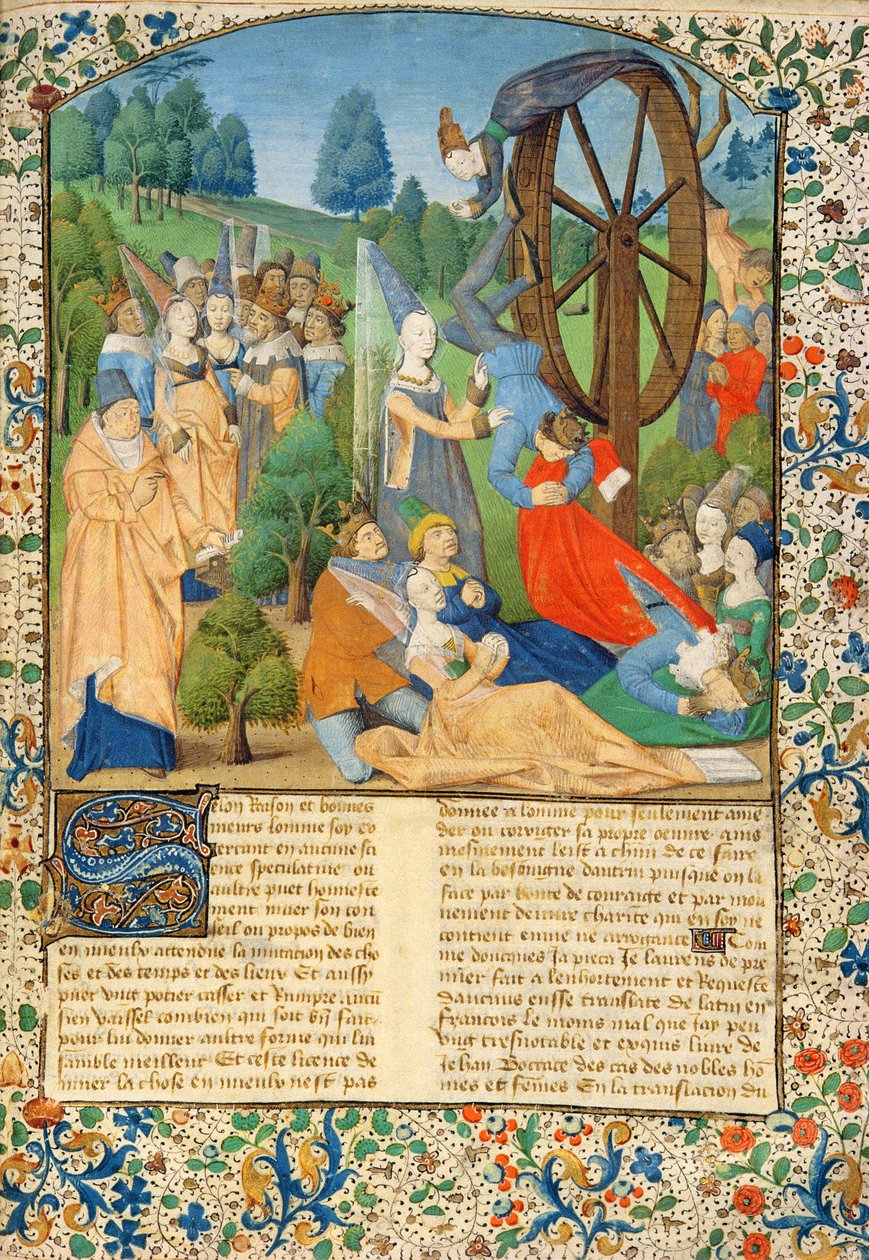 Selon Raison et bonnes
meurs lomme soy ex
ercant en aucune sci
ence speculatiue ou
aultre puet honneste
ment muer son con
seil ou propos de bien
en mieulx attendue la mutacion des cho
ses et des temps et des lieux Et aussy
puet vng potier casser et Rumpre aucun
sien vaissel combien qui soit bn̄ fait
pour lui donner aultre forme qui lui
samble meilleur Et ceste licence de
muer la chose en mieulx nest pas
donnee a lomme pour seulement ame
der ou corrigier sa propre oeuure ains
mesmement leist a chūn de ce faire
en la besoingne dautrui puisque on la
face par bonte de couraige et par mou
uement de vraie charite qui en soy ne
contient enuie ne arrogance Com
me doncques Ja pieca Je laurens de pre
mier fait a lenhortement et Requeste
daucuns eusse translate de latin en
francois le moins mal que Jay peu
vng tresnotable et exquis liure de
Jehan Boccace des cas des nobles hō
mes et fēmes En la translacion du